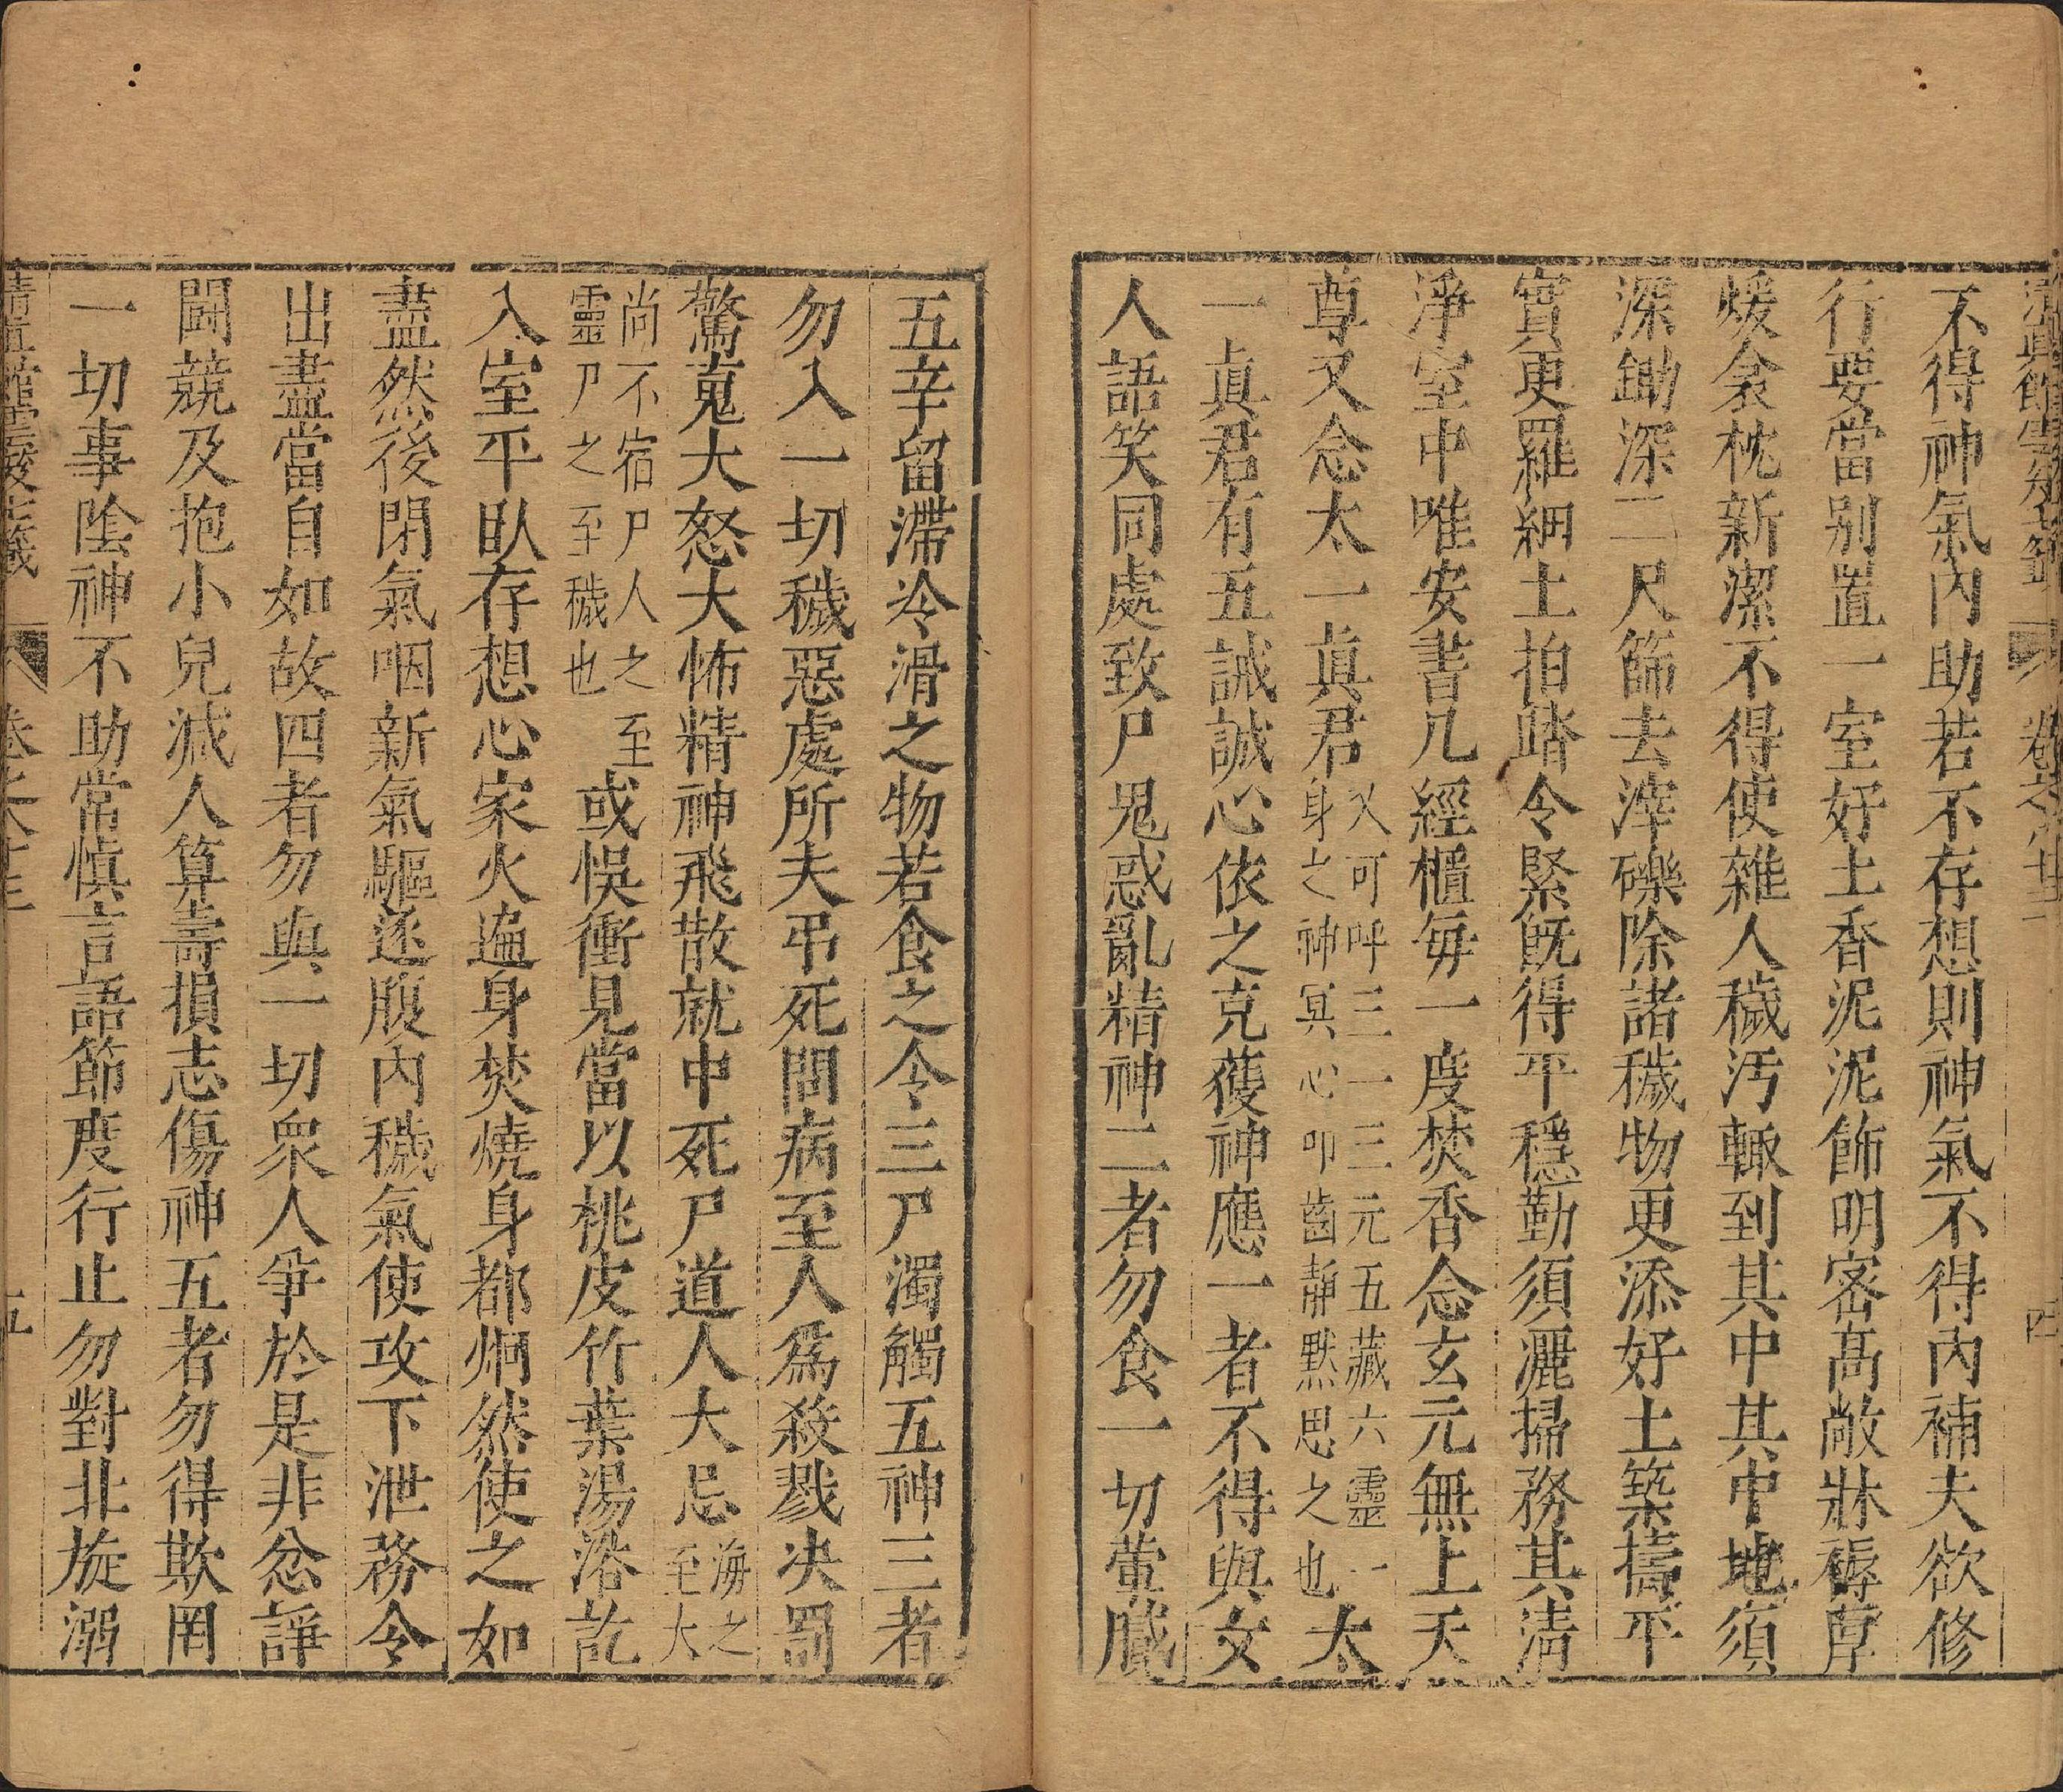 不得神氣內助若不存想則神氣不得內補夫欲修
行要當別置一室好土香泥泥飾明密高敞牀褥厚
煖衾枕新潔不得使雜人穢汚輙到其中其中地須
深鋤深二尺篩去滓礫除諸穢物更添好土築擣平
實更羅細土拍踏令緊既得平穩勤須灑掃務其清
淨室中唯安書几經櫃每一度焚香念玄元無上天
尊又念太一眞君又可呼三一三元五藏六靈一身之神冥心叩齒靜默思之也太
一眞君有五誡誠心依之克獲神應一者不得與女
人語笑同處致尸鬼惑亂精神二者勿食一切葷臓
五辛留滯冷滑之物若食之令三尸濁觸五神三者
勿入一切穢惡處所夫弔死問病至人爲殺戮决罰
驚䰟大怒大怖精神飛散就中死尸道人大忌海之至大
尚不宿尸人之至靈尸之至穢也或悞衝見當以桃皮竹葉湯浴訖
入室平臥存想心家火遍身焚燒身都炯然使之如
盡然後閉氣咽新氣驅逐腹內穢氣使攻下泄務令
出盡當自如故四者勿與一切衆人爭於是非忿諍
鬪競及抱小兒減人算壽損志傷神五者勿得欺罔
一切事陰神不助常慎言語節度行止勿對北旋溺
五